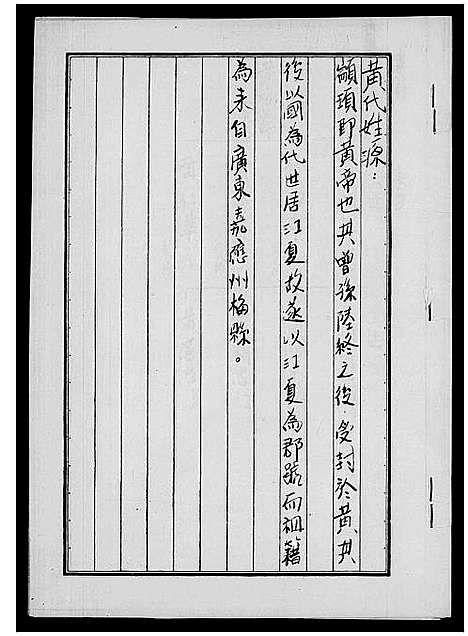 黄代姓源：
顓頊即黄帝也其曾孫陸終之後，受封於黄其
後以國為代世居江夏故遂以江夏為郡號而祖籍
為来自廣東嘉應州梅縣。